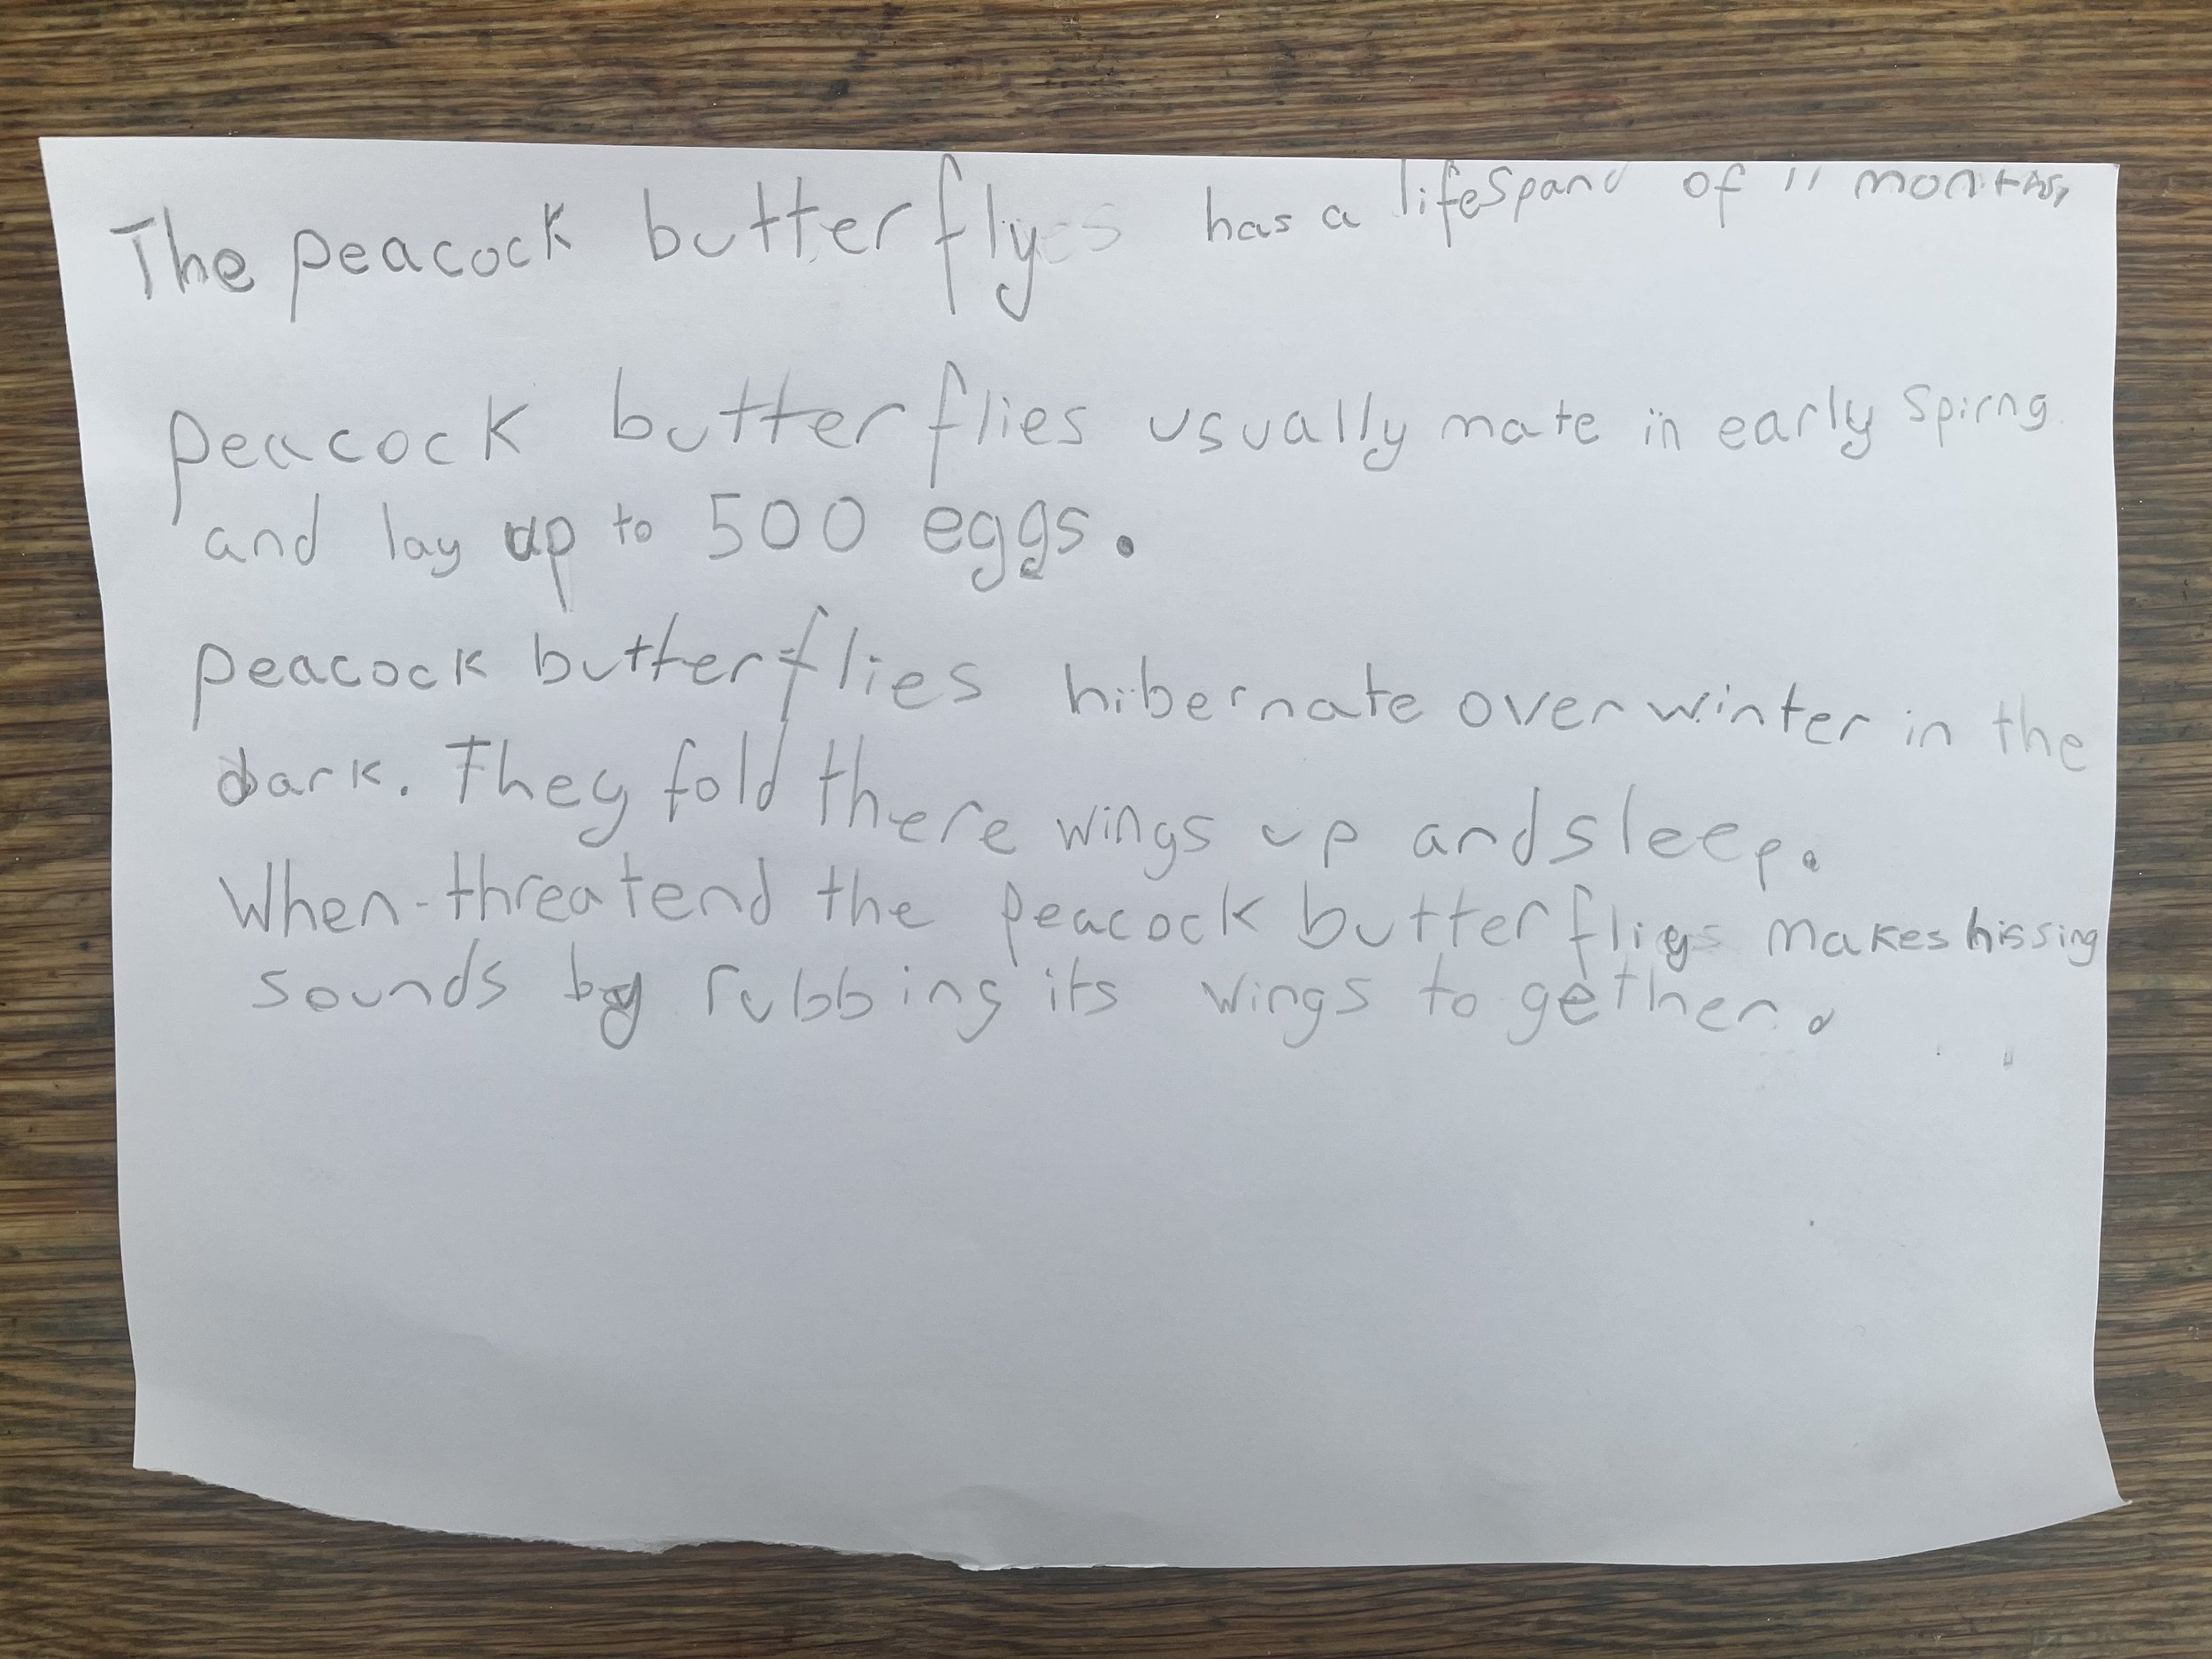 The peacock butterfly has a lifespand of 11 months
Peacock butterflies usually mate in early Spirng
and lay up to 500 eggs.
Peacock butterflies hibernate over winter in the
dark. They fold there wings up and sleep.
When threatend the Peacock butterfly makes hissing
sounds by rubbing its wings to gether.